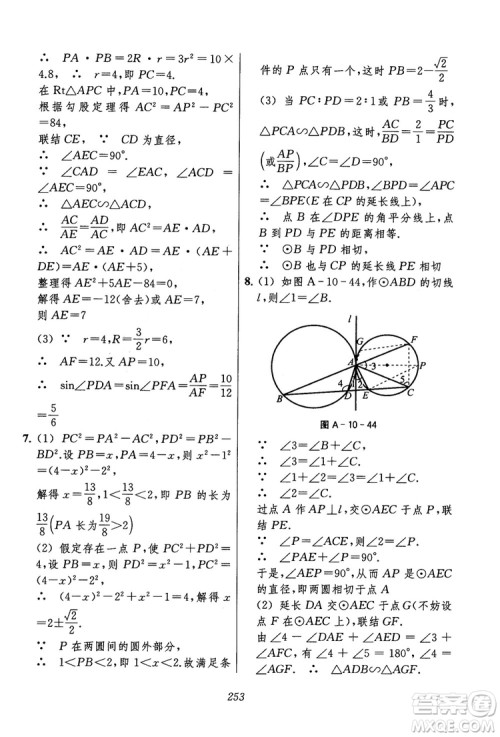 ∴ PA·PB=2R·r=3r²=10×
4.8，∴ r=4,即 PC=4.
在 Rt△APC 中,PA=10,
根据勾股定理得 AC²=AP²-PC²
=84,
联结 CE，∵ CD 为直径,
∴ ∠AEC=90°.
∵ ∠CAD=∠EAC，∠ACD=
∠AEC=90°,
∴ △AEC∽△ACD,
∴ AC/AE=AD/AC,即 AC²=AE·AD,
整理得 AE²+5AE-84=0,
解得 AE=-12(舍去)或 AE=7,
即 AE=7.
(3) ∵ r=4，R=3/2 r=6,
∴ AF=12.
∴ sin∠PDA=sin∠PFA=AP/AF=10/12=
5/6
7. (1) PC²=PA²-AC²=PB²-
BD²,(4-x)²-2²=x²-1²,
解得 x=13/8,1<13/8<2,即 PB 的长为
13/8(PA 长为 19/8>2)
(2) 假定存在一点 P 使 PC²+PD²=
4,设 PB=x,则 PD²=x²-1,PC²=
(4-x)²-2²,
∴ (4-x)²-2²+x²-1=4,解得 x=
2±√2/2.
∵ P 在两圆间的圆外部分,
∴ 1<PB<2,即 1<x<2.故满足条
件的 P 点只有一个,这时 PB=2-√2/2
(3) 当 PC∶PD=2∶1或 PB=4/3
时,△PCA∽△PDB,这时 AC/BD=PC/PD
(或 AP/BP)
∴ △PCA∽△PDB，∠BPD=∠APC
=∠BPE(E 在 CP 的延长线上),
∴ 点 B 在∠DPE 的角平分线上,B
到 PD 与 PE 的距离相等.
∵ ⊙B 与 PD 相切,
∴ ⊙B 也与 CP 的延长线 PE 相切
8. (1) 如图 A-10-44,作⊙ABD 的切线
l,则∠1=∠B.
l
G
F
A
3
P
4
1
2
5
B
D
E
C
图 A-10-44
∵ ∠3=∠B+∠C,
∴ ∠3=∠1+∠C.
∵ ∠1+∠2+∠3=90°,
∴ 2∠1+∠2+∠C=90°.
过点 A 作 AP⊥l,交⊙AEC 于点 P.
∵ ∠P=∠C,∠P+∠2+2∠1=90°,
∴ ∠PEA=90°.
于是,∠AEP=90°,AP 是⊙AEC 的直
径,即两圆相切于点 A
(2) 延长 DA 交⊙AEC 于点 G(不妨设
点 F 在弧 GC 上),∠B=∠C=∠AGF.
由∠4-∠5=∠AFE-∠AEF，∠4+
∠AEF+∠5+∠AFE=180°,得∠4+
∠AEF=90°，∠4=∠AFG，∠AEF=
∠AGF. ∴ △ADB∽△AFG,
253